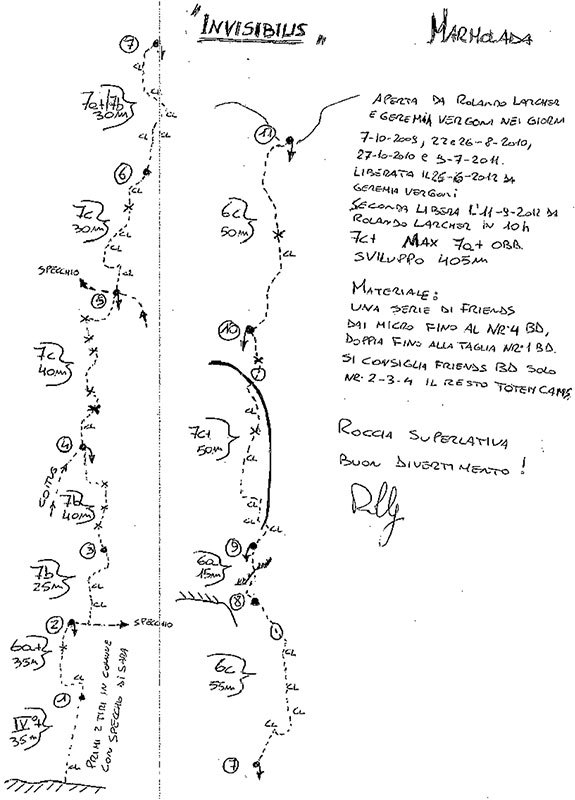 "INVISIBILIS"
MARMOLADA
APERTA DA ROLANDO LARCHER
E GEREMIA VERGONI NEI GIORNI
7-10-2009, 22 E 26-8-2010,
27-10-2010 E 3-7-2011.
LIBERATA IL 25-6-2012 DA
GEREMIA VERGONI
SECONDA LIBERA L'11-9-2012 DA
ROLANDO LARCHER IN 10h
7c+ MAX 7a+ OBB.
SVILUPPO 405m
MATERIALE:
UNA SERIE DI FRIENDS
DAI MICRO FINO AL NR.4 BD,
DOPPIA FINO ALLA TAGLIA NR.1 BD.
SI CONSIGLIA FRIENDS BD SOLO
NR. 2-3-4 IL RESTO TOTEM CAMS
ROCCIA SUPERLATIVA
BUON DIVERTIMENTO!
7
CL
CL
7a+/7b
30m
CL
CL
6
CL
7c
30m
CL
CL
CL
SPECCHIO
5
7c
40m
4
CL
VOITUS
7b
40m
3
7b
25m
CL
CL
2
SPECCHIO
6a+
35m
CL
1
IV+
35m
CL
PRIMI 2 TIRI IN COMUNE
CON SPECCHIO DI SARA
11
CL
6c
50m
CL
10
CL
7c+
50m
CL
CL
CL
9
6a
15m
8
CL
6c
55m
CL
CL
7